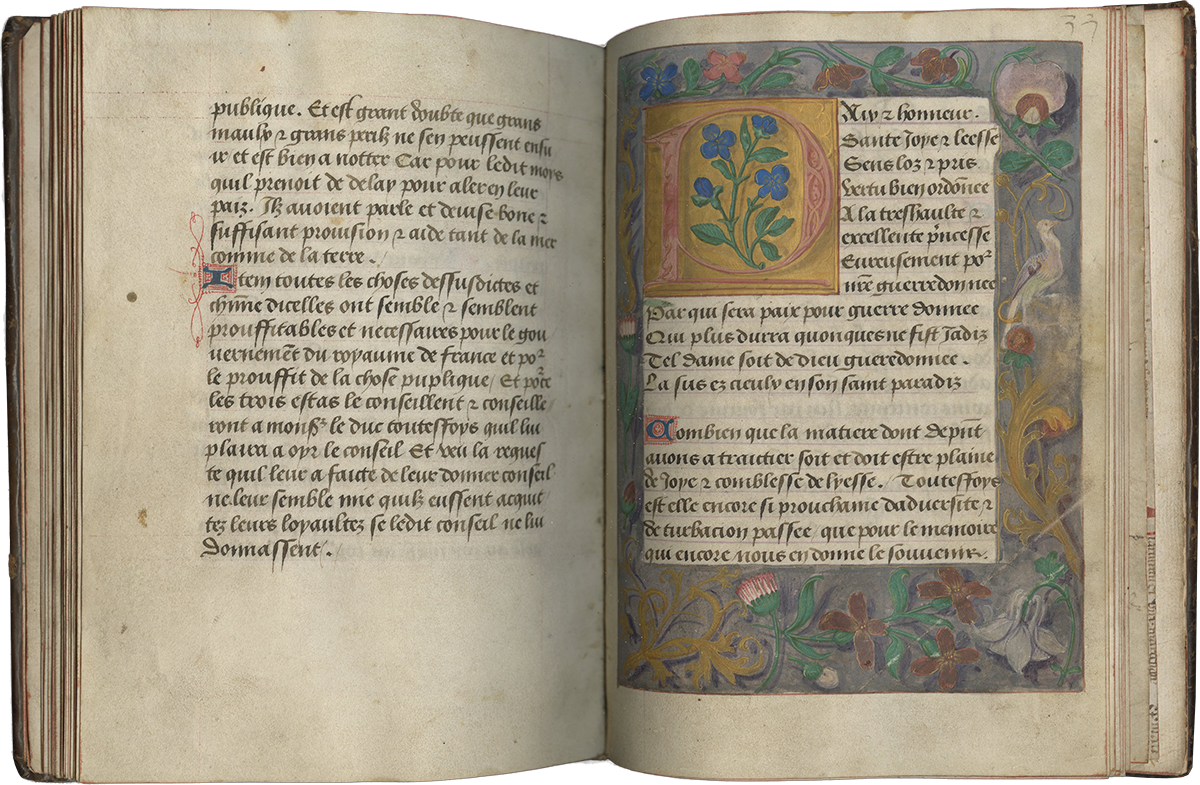 publique. Et est grant doubte que grans
maulx ⁊ grans perilz ne sen peussent ensu
ir et est bien a notter Car pour ledit moys
quil prenoit de delay pour aler en leur
paiz. Ilz avoient parle et devise bone ⁊
suffisant provision ⁊ aide tant de la mer
comme de la terre.
Item toutes les choses dessusdictes et
chūne dicelles ont semble ⁊ semblent
prouffitables et necessaires pour le gou
vernemēt du royaume de france et poʳ
le prouffit de la chose puplique / Et pōʳce
les trois estas le conseillent ⁊ conseille
ront a monsʳ le duc touteffoys quil lui
plaira a oyr le conseil Et veu la reques
te quil leur a faicte de leur donner conseil
ne leur semble mie quilz eussent acquit
tez leurs loyaultez se ledit conseil ne lui
donnassent.
33
D Aix ⁊ honneur.
Sante Joye ⁊ leesse
Sens loz ⁊ pris
Vertu bien ordōnee
A la treshaulte ⁊
excellente p̄ncesse
Eureusement poʳ
nr̄e guerredonnee
Par qui sera paix pour guerre donnee
Qui plus durra quonques ne fist Jadiz
Tel dame soit de dieu gueredonnee.
La sus ez cieulx en son saint paradiz
Combien que la matiere dont de pn̄t
avons a traictier soit et doit estre plaine
de Joye ⁊ comblesse de lyesse. / Touteffoys
est elle encore si prouchaine dadversite ⁊
de turbacion passee, que pour le memoire
qui encore nous en donne le souvenir.